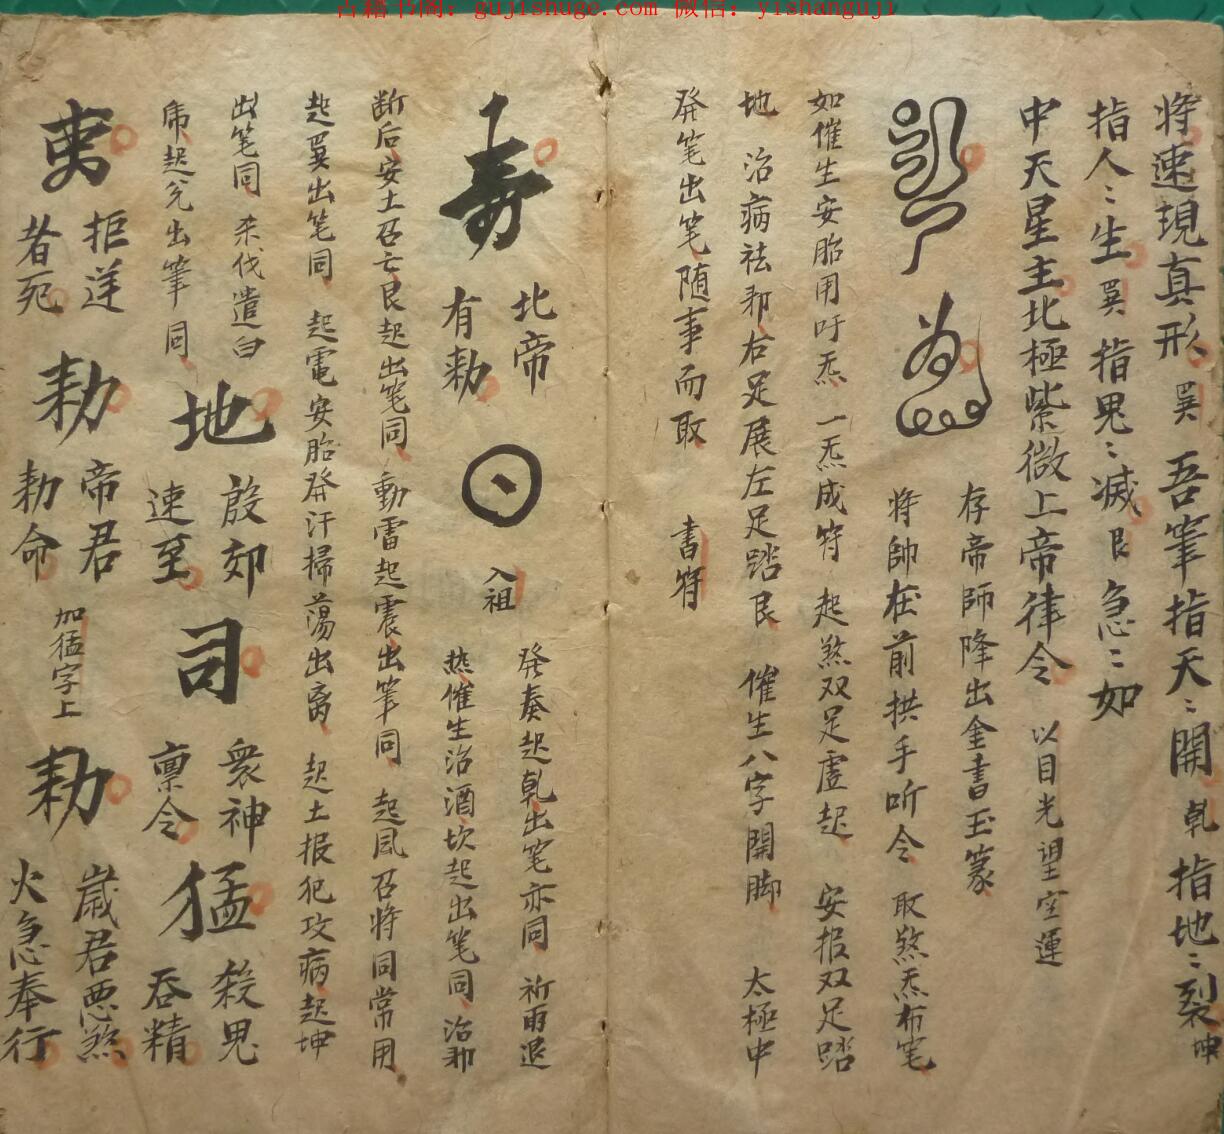 古籍书阁：gujishuge.com 微信：yishanguji
将速現真形 巽 吾筆指天〻開 乾 指地〻裂 坤
指人〻生 巽 指鬼〻滅 艮 急〻如
中天星主北極紫微上帝律令 以目光望空運
存帝師降出金書玉篆
将帥在前拱手听令 取煞炁布笔
如催生安胎用吁炁 一炁成符 起煞双足虚起 安报双足踏
地 治病祛邪右足展左足踏艮 催生八字開脚 太極中
発笔出笔随事而取 書符
壽 北帝
有勅
入祖
発奏起乾出笔亦同 祈雨退
热催生治酒坎起出笔同 治邪
断后安土召亡艮起出笔同 動雷起震出筆同 起風召将同常用
起巽出笔同 起電安胎発汗掃蕩出离 起土报犯攻病起坤
出笔同 杀伐遣白
虎起兊出筆同
地 殷郊
速至
司 衆神
禀令
猛 殺鬼
吞精
夷 拒逆
者死
勅 帝君
勅命
加猛字上
勅 歳君悪煞
火急奉行